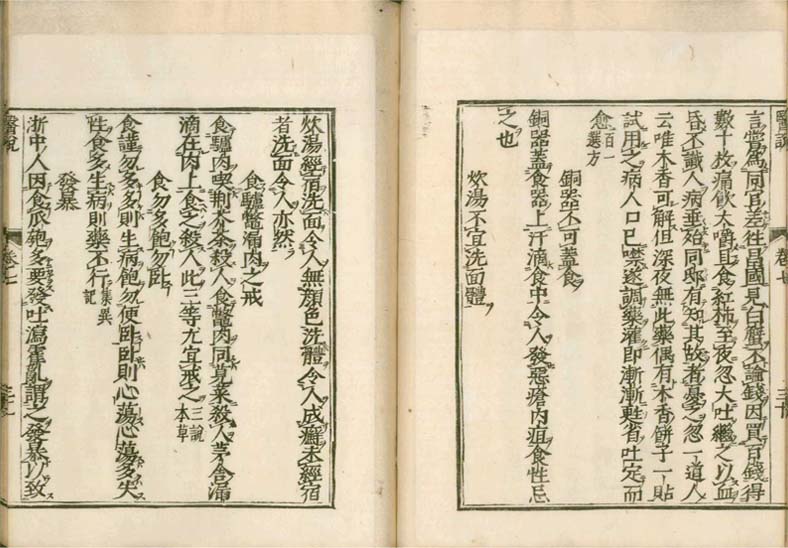 醫說 卷七 三十
言嘗為同官差往昌國見白蟹不論錢因買百錢得
數十枚痛飲大嚼且食紅柿至夜忽大吐繼之以血
昏不識人病垂殆同邸有知其故者憂之忽一道人
云唯木香可解但深夜無此藥偶有木香餅子一貼
試用之病人口已噤遂調藥灌即漸漸甦省吐定而
愈百一選方
銅器不可蓋食
銅器蓋食器上汗滴食中令人發惡瘡內疽食性忌
之也
炊湯不宜洗面體
炊湯經宿洗面令人無顏色洗體令人成癬未經宿
者洗面令人亦然
食驢鱉漏肉之戒
食驢肉喫荆芥茶殺人食鱉肉同莧菜殺人茅舍漏
滴在肉上食之殺人此三等尤宜戒之三說本草
食勿多飽勿臥
食謹勿多多則生病飽勿便臥臥則心蕩心蕩多失
性食多生病則藥不行集異記
發暴
浙中人因食瓜匏多要發吐瀉霍亂謂之發暴以致
醫說 卷七